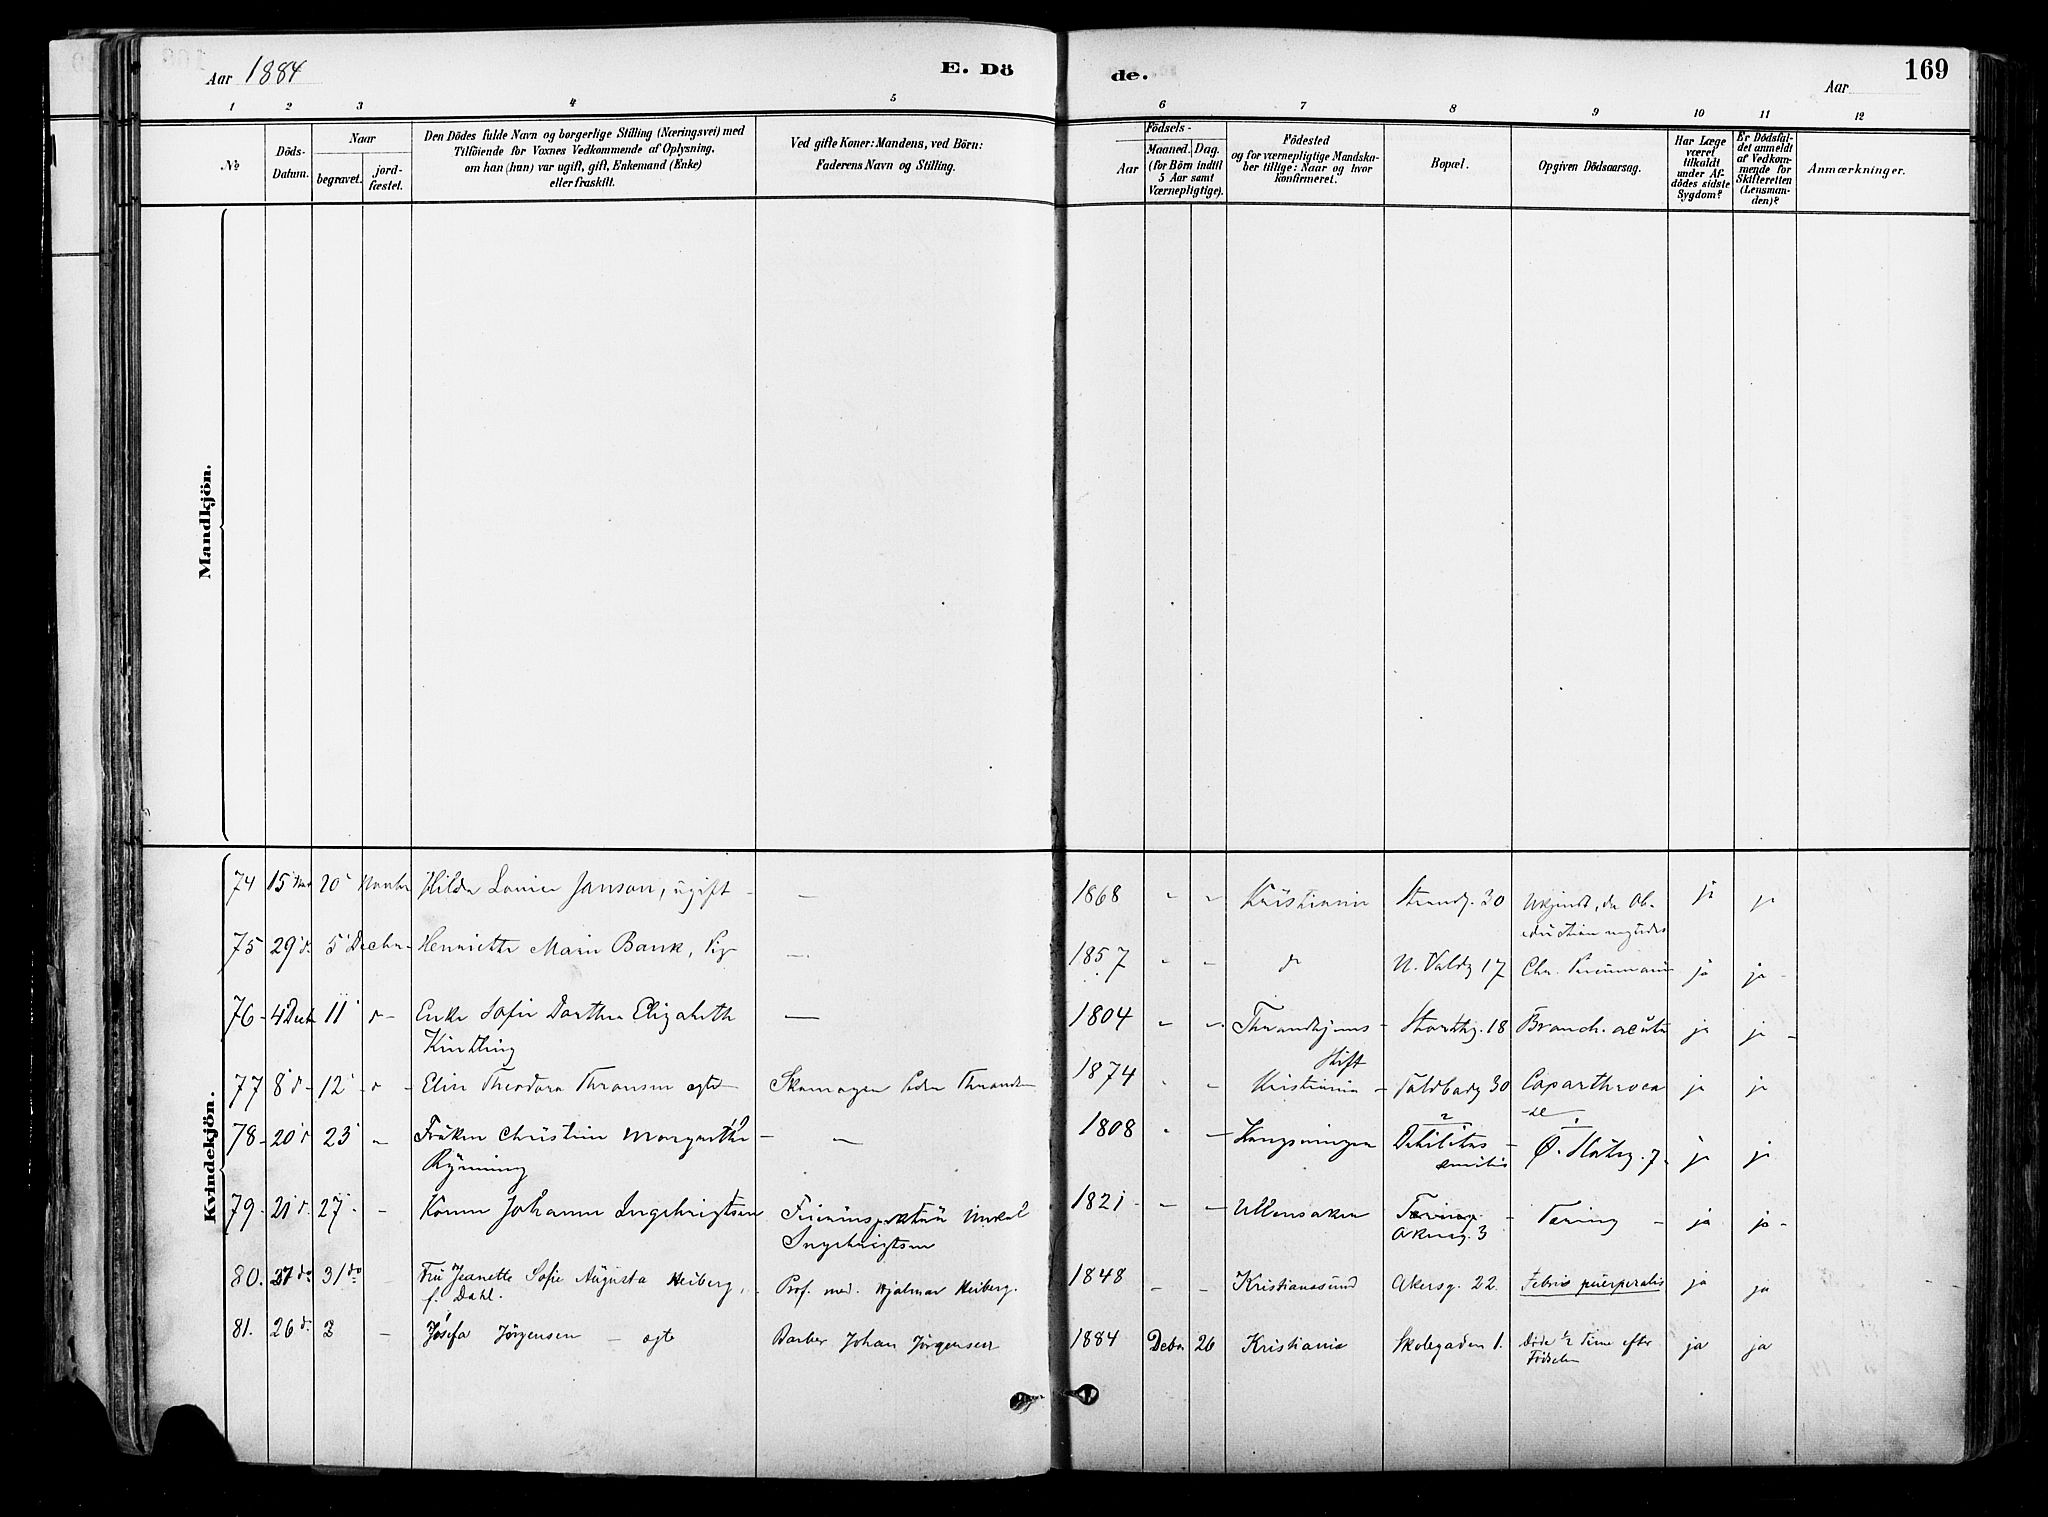 Aar 1884
E. Dö
de.
Aar
169
1 2 3 4 5 6 7 8 9 10 11 12
No
Döds-Datum.
Naar
begravet.
jord-fæstet.
Den Dödes fulde Navn og borgerlige Stilling (Næringsvei) med
Tilföiende for Voxnes Vedkommende af Oplysning,
om han (hun) var ugift, gift, Enkemand (Enke)
eller fraskilt.
Ved gifte Koner: Mandens, ved Börn:
Faderens Navn og Stilling.
Födsels-
Aar
Maaned. Dag.
(for Börn indtil
5 Aar samt
Værnepligtige).
Födested
og for værnepligtige Mandska-
ber tillige: Naar og hvor
konfirmeret.
Bopæl.
Opgiven Dödsaarsag.
Har Læge
været
tilkaldt
under Af-
dödes sidste
Sygdom?
Er Dödsfal-
det anmeldt
af Vedkom-
mende for
Skifteretten
(Lensman-
den)?
Anmærkninger.
Mandkjön.
Kvindekjön.
74 15 20 Hilda Janson, ugift — 1868 " " Kristiania Strandg. 30 ja ja
75 29 d. 5 Henriette Marie Bank, Pig — 1857 " " d N. Voldg 17 Chr. ja ja -
76 - 4 11 Enke Sofie Dorthea Elizabeth — 1804 " " Throndhjems - 18 Bronch. acuta ja ja -
Stift
77 8 12 Elin Theodora ægte 1874 " " Kristiania - Toldbodg 30 ja ja
78 - 20 23 Frøken Christine Margrethe — — 1808 Kongsvingen Debilitas senilis Ø. 7 - ja ja
Rynning
79. 21 27 Konen Johanne Ingebrigtsen 1821 - — Ullensaker Akersg. 3 - Tæring - ja ja -
Ingebrigtsen
80. 27 do 31 do Fru Jeanette Sofie Augusta Heiberg, Prof. med. Hjalmar Heiberg. 1848 - - Kristianssund Akersg. 22. Febris puerperalis ja ja
f. Dahl.
81. 26 d. 2 - Josefa Jørgensen — ægte Barber Johan Jørgensen 1884 Debr 26 Kristiania Skolegaden 1. Døde 1/2 Time efter ja ja
Fødselen